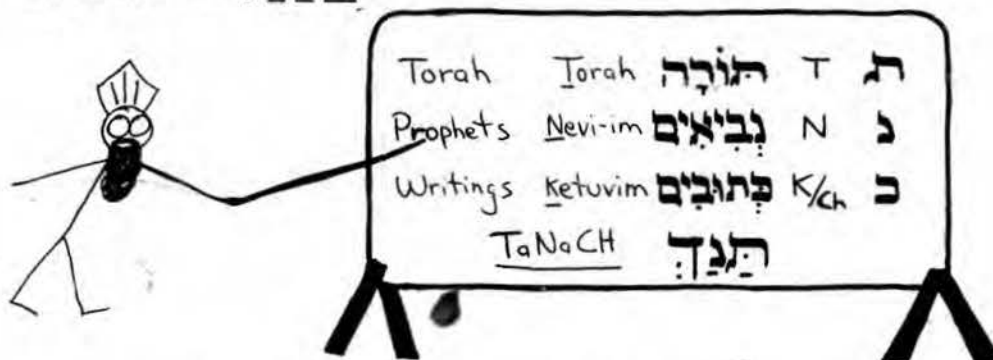 Torah Torah תּוֹרָה T ת
Prophets Nevi-im נְבִיאִים N נ
Writings Ketuvim כְּתוּבִים K/Ch כ
TaNaCH תַּנַךְ